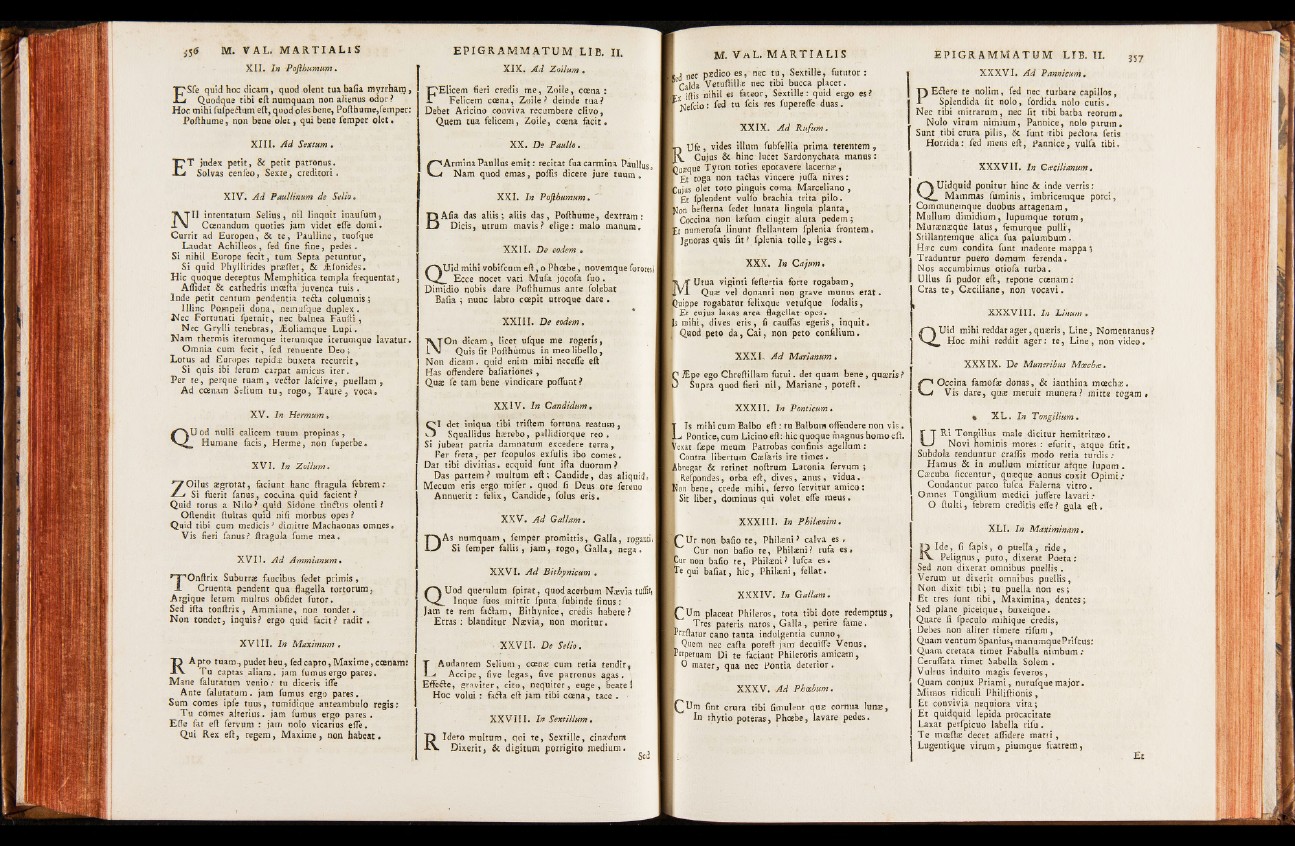 356 M. VAL. MARTIALIS
XII. In Posthumum.
ESse quid hoc dicam, quod olent tua basia myrrham,
Quodque tibi est numquam non alienus odor?
Hoc mihi suspectum est, quod oles bene, Posthume, semper:
Posthume, non bene olet, qui bene semper olet.
XIII. Ad Sextum.
ET judex petit, & petit patronus.
Solvas censeo, Sexte, creditori.
XIV. Ad Paullinum de Selio.
NIl intentatum Selius, nil linquit inausum,
Cœnandum quoties jam videt esse domi.
Currit ad Europen, & te, Paulline, tuosque
Laudat Achilleos, sed sine fine, pedes.
Si nihil Europe fecit, tum Septa petuntur,
Si quid Phyllirides præstet, & Æsonides.
Hic quoque deceptus Memphitica templa frequentat,
Assidet & cathedris mœsta juvenca tuis.
Inde petit centum pendentia tecta columnis;
Illinc Pompeii dona, nemusque duplex.
Nec Fortunati spernit, nec balnea Fausti,
Nec Grylli tenebras, Æoliamque Lupi.
Nam thermis iterumque iterumque iterumque lavatur.
Omnia cum fecit, sed renuente Deo;
Lotus ad Europes tepidæ buxeta recurrit,
Si quis ibi serum carpat amicus iter.
Per te, perque tuam, vector lascive, puellam,
Ad cœnam Selium tu, rogo, Taure, voca.
XV. In Hermum.
QUod nulli calicem tuum propinas,
Humane facis, Herme, non superbe.
XVI. In Zoilum.
ZOilus ægrotat, faciunt hanc stragula febrem:
Si fuerit sanus, coccina quid facient?
Quid torus a Nilo? quid Sidone tinctus olenti?
Ostendit stultas quid nisi morbus opes?
Quid tibi cum medicis? dimitte Machaonas omnes.
Vis fieri sanus? stragula sume mea.
XVII. Ad Ammianum.
TOnstrix Suburræ faucibus sedet primis,
Cruenta pendent qua flagella tortorum,
Argique letum multus obsidet sutor.
Sed ista tonstrix, Ammiane, non tondet.
Non tondet, inquis? ergo quid facit? radit.
XVIII. In Maximum.
RApto tuam, pudet heu, sed capto, Maxime, cœnam:
Tu captas aliam. jam sumus ergo pares.
Mane salutatum venio: tu diceris isse
Ante salutatum. jam sumus ergo pares.
Sum comes ipse tuus, tumidique anteambulo regis:
Tu comes alterius. jam sumus ergo pares.
Esse sat est servum: jam nolo vicarius esse.
Qui Rex est, regem, Maxime, non habeat.
EPIGRAMMATUM LIB. II.
XIX. Ad Zoilum.
FElicem fieri credis me, Zoile, cœna:
Felicem cœna, Zoile? deinde tua?
Debet Aricino conviva recumbere clivo,
Quem tua felicem, Zoile, cœna facit.
XX. De Paullo.
CArmina Paullus emit: recitat sua carmina Paullus.
Nam quod emas, possis dicere jure tuum.
XXI. In Posthumum.
BAsia das aliis; aliis das, Posthume, dextram:
Dicis, utrum mavis? elige: malo manum.
XXII. De eodem.
QUid mihi vobiscum est, o Phœbe, novemque sorores?
Ecce nocet vati Musa jocosa suo.
Dimidio nobis dare Posthumus ante solebat
Basia; nunc labro cœpit utroque dare.
XXIII. De eodem.
NOn dicam, licet usque me rogetis,
Quis sit Posthumus in meo libello,
Non dicam. quid enim mihi necesse est
Has offendere basiationes,
Quæ se tam bene vindicare possunt?
XXIV. In Candidum.
SI det iniqua tibi tristem fortuna reatum,
Squallidus hærebo, pallidiorque reo.
Si jubeat patria damnatum excedere terra,
Per freta, per scopulos exsulis ibo comes.
Dat tibi divitias. ecquid sunt ista duorum?
Das partem? multum est; Candide, das aliquid.
Mecum eris ergo miser. quod si Deus ore sereno
Annuerit: felix, Candide, solus eris.
XXV. Ad Gallam.
DAs numquam, semper promittis, Galla, roganti.
Si semper fallis, jam, rogo, Galla, nega.
XXVI. Ad Bithynicum.
QUod querulum spirat, quod acerbum Nævia tussit,
Inque suos mittit sputa subinde sinus:
Jam te rem factam, Bithynice, credis habere?
Erras: blanditur Nævia, non moritur.
XXVII. De Selio.
LAudantem Selium, cœnæ cum retia tendit,
Accipe, sive legas, sive patronus agas.
Effecte, graviter, cito, nequiter, euge, beate!
Hoc volui: facta est jam tibi cœna, tace.
XXVIII. In Sextillum.
RIdeto multum, qui te, Sextille, cinædum
Dixerit, & digitum porrigito medium.
Sed
M. VAL. MARTIALIS
Sed nec pædico es, nec tu, Sextille, fututor:
Calda Vetustillæ nec tibi bucca placet.
Ex istis nihil es fateor, Sextille: quid ergo es?
Nescio: sed tu scis res superesse duas.
XXIX. Ad Rufum.
RUfe, vides illum subsellia prima terentem,
Cujus & hinc lucet Sardonychata manus:
Quæque Tyron toties epotavere lacernæ,
Et toga non tactas vincere jussa nives:
Cujus olet toto pinguis coma Marceliano,
Et splendent vulso brachia trita pilo.
Non hesterna sedet lunata lingula planta,
Coccina non læsum cingit aluta pedem;
Et numerosa linunt stellantem splenia frontem.
Ignoras quis sit? splenia tolle, leges.
XXX. In Cajum.
MUtua viginti sestertia forte rogabam,
Quæ vel donanti non grave munus erat.
Quippe rogabatur felixque vetusque sodalis,
Et cujus laxas arca flagellat opes.
Is mihi, dives eris, si caussas egeris, inquit.
Quod peto da, Cai, non peto consilium.
XXXI. Ad Marianum.
SÆpe ego Chrestillam futui. det quam bene, quæris?
Supra quod fieri nil, Mariane, potest.
XXXII. In Ponticum.
LIs mihi cum Balbo est: tu Balbum offendere non vis.
Pontice, cum Licino est: hic quoque magnus homo est.
Vexat sæpe meum Patrobas confinis agellum:
Contra libertum Cæsaris ire times.
Abnegat & retinet nostrum Laronia servum;
Respondes, orba est, dives, anus, vidua.
Non bene, crede mihi, servo servitur amico:
Sit liber, dominus qui volet esse meus.
XXXIII. In Philænim.
CUr non basio te, Philæni? calva es.
Cur non basio te, Philæni? rufa es.
Cur non basio te, Philæni? lusca es.
Te qui basiat, hic, Philæni, fellat.
XXXIV. In Gallam.
CUm placeat Phileros, tota tibi dote redemptus,
Tres pateris natos, Galla, perire fame.
Præstatur cano tanta indulgentia cunno,
Quem nec casta potest jam decuisse Venus.
Perpetuam Di te faciant Philerotis amicam,
O mater, qua nec Pontia deterior.
XXXV. Ad Phœbum.
CUm sint crura tibi simulent quæ cornua lunæ,
In rhytio poteras, Phœbe, lavare pedes.
EPIGRAMMATUM LIB. II. 357
XXXVI. Ad Pannicum.
PEctere te nolim, sed nec turbare capillos,
Splendida sit nolo, sordida nolo cutis.
Nec tibi mitrarum, nec sit tibi barba reorum.
Nolo virum nimium, Pannice, nolo parum.
Sunt tibi crura pilis, & sunt tibi pectora setis
Horrida: sed mens est, Pannice, vulsa tibi.
XXXVII. In Cæcilianum.
QUidquid ponitur hinc & inde verris:
Mammas suminis, imbricemque porci,
Communemque duobus attagenam,
Mullum dimidium, lupumque totum,
Murænæque latus, femurque pulli,
Stillantemque alica sua palumbum.
Hæc cum condita sunt madente mappa;
Traduntur puero domum ferenda.
Nos accumbimus otiosa turba.
Ullus si pudor est, repone cœnam:
Cras te, Cæciliane, non vocavi.
XXXVIII. In Linum.
QUid mihi reddat ager, quæris, Line, Nomentanus?
Hoc mihi reddit ager: te, Line, non video.
XXXIX. De Muneribus Mœchæ.
COccina famosæ donas, & ianthina mœchæ.
Vis dare, quæ meruit munera? mitte togam.
XL. In Tongilium.
URi Tongilius male dicitur hemitritæo.
Novi hominis mores: esurit, atque sitit.
Subdola tenduntur crassis modo retia turdis:
Hamus & in mullum mittitur atque lupum.
Cæcuba siccentur, quæque annus coxit Opimi:
Condantur parco fusca Falerna vitro.
Omnes Tongilium medici jussere lavari:
O stulti, febrem creditis esse? gula est.
XLI. In Maximinam.
RIde, si sapis, o puella, ride,
Pelignus, puto, dixerat Poeta:
Sed non dixerat omnibus puellis.
Verum ut dixerit omnibus puellis,
Non dixit tibi; tu puella non es;
Et tres sunt tibi, Maximina, dentes;
Sed plane piceique, buxeique.
Quare si speculo mihique credis,
Debes non aliter timere risum,
Quam ventum Spanius, manumque Priscus:
Quam cretata timet Fabulla nimbum:
Cerussata timet Sabella Solem.
Vultus induito magis severos,
Quam conjux Priami, nurusque major.
Mimos ridiculi Philistionis,
Et convivia nequiora vita;
Et quidquid lepida procacitate
Laxat perspicuo labella risu.
Te mœstæ decet assidere matri,
Lugentique virum, piumque fratrem,
Et